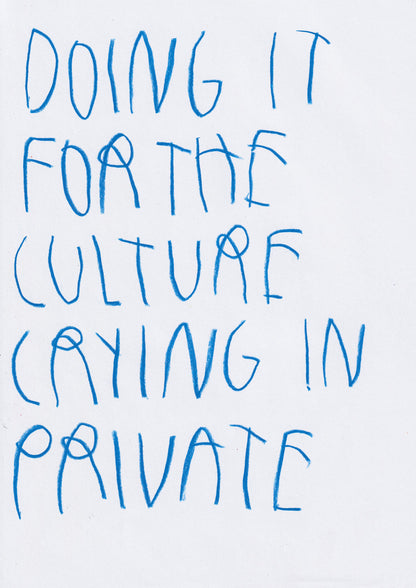 DOING IT
FOR THE
CULTURE
CRYING IN
PRIVATE